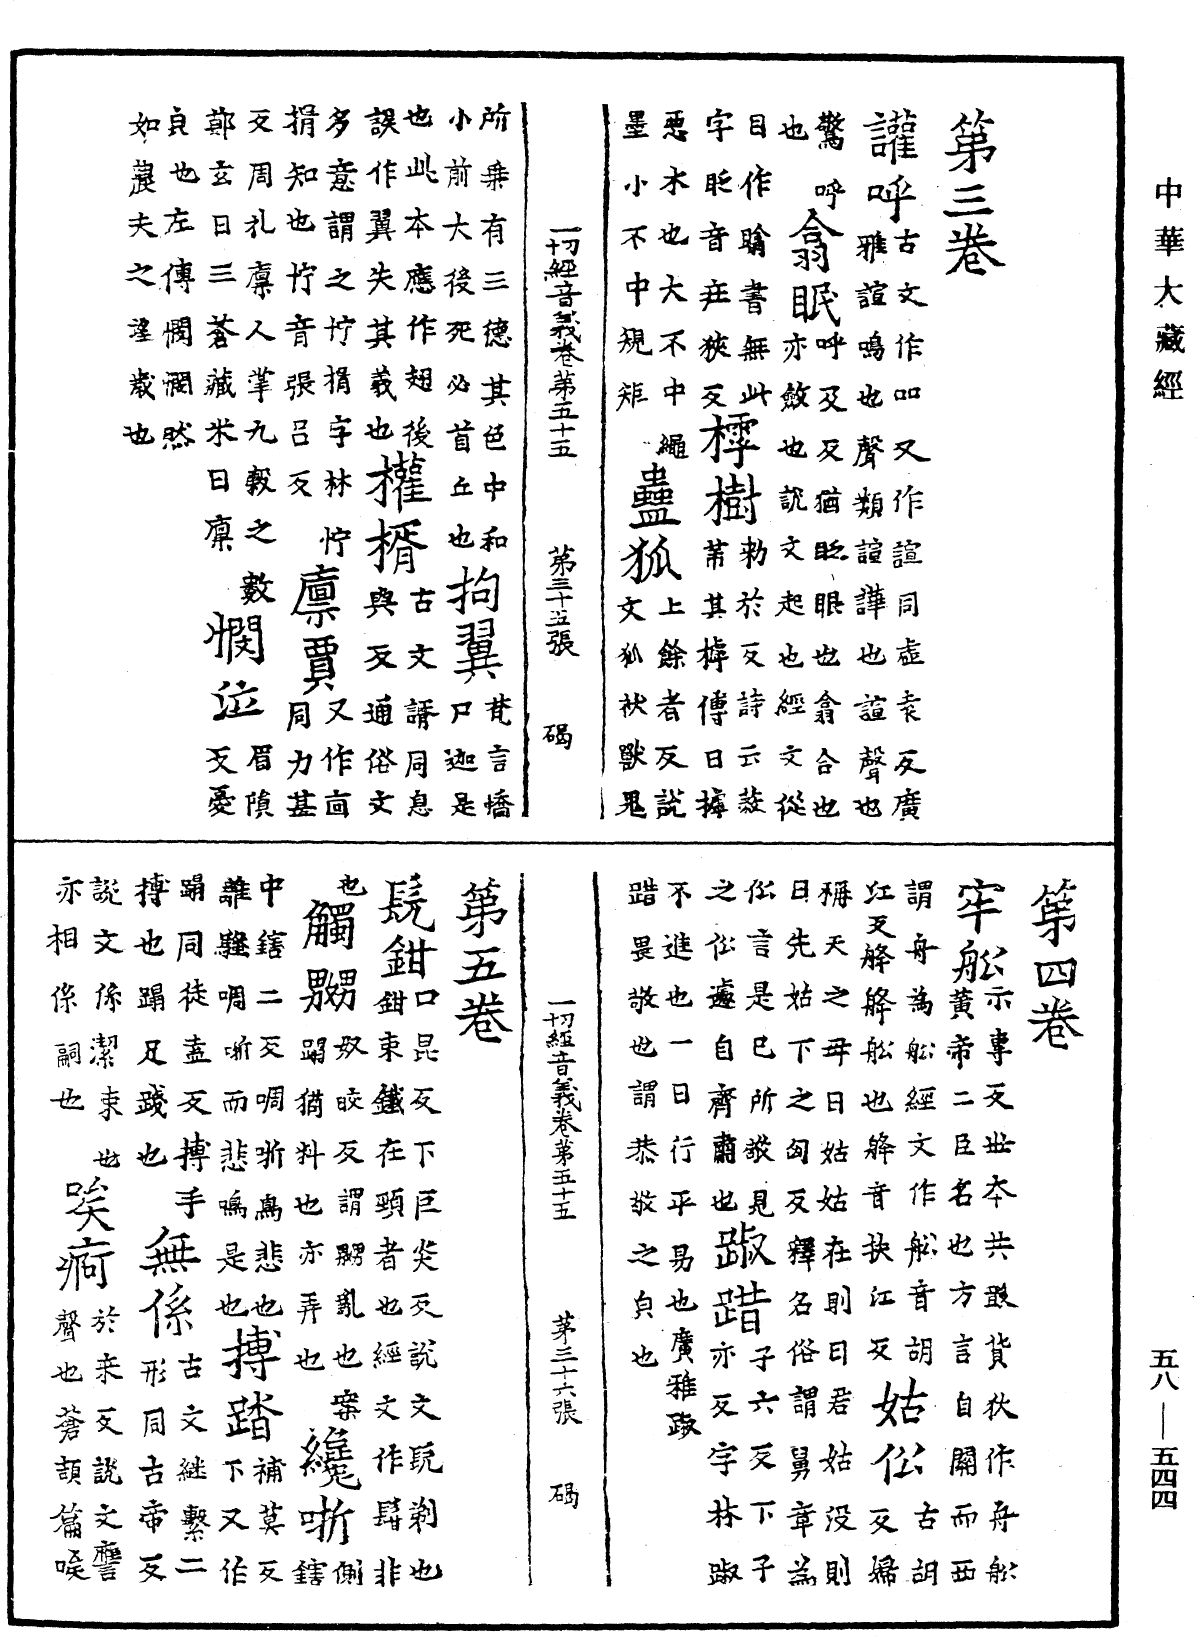 中華大藏經
第三卷
讙呼古文作吅又作諠同虛袁反廣
雅諠鳴也聲類諠譁也諠聲也
驚呼翕眠呼及反猶眨眼也翕合也
也亦斂也說文起也經文從
目作瞈書無此樗樹勑於反詩云蔱
字眨音庄狹反苐其樗傳曰樗
惡木也大不中繩蠱狐上餘者反說
墨小不中規矩文狐䄏獸鬼
一切經音義卷第五十五 第三十五張 碣
所乘有三德其色中和拘翼梵言憍
小前大後死必首丘也尸迦是
也此本應作翅後權楈古文諝同息
誤作翼失其義也與反通俗文
多意謂之㤖揟字林㤖廩賈又作㐭
揟知也㤖音張呂反同力甚
反周礼廩人掌九穀之數憫泣眉隕
鄭玄曰三蒼藏米曰廩反憂
良也左傳憫憫然
如農夫之望歲也
第四卷
牢舩示專反世本共鼓貨狄作舟舩
黃帝二臣名也方言自關而西
謂舟為舩經文作舩音胡姑伀古胡
江反舽舽舩也舽音扶江反反婦
稱天之母曰姑姑在則曰君姑没則
曰先姑下之匈反釋名俗謂舅章為
伀言是巳所敬見踧踖子六反下子
之伀遽自齊肅也亦反字林踧
不進也一曰行平易也廣雅踧
踖畏敬也謂恭敬之皃也
一切經音義卷第五十五 第三十六張 碣
第五卷
髡鉗口昆反下巨炎反說文髡剃也
鉗束鐵在頸者也經文作髻非
也觸嬲奴皎反謂嬲亂也案纔哳側
蹋猶料也亦弄也鎋
中鎋二反啁哳鳥悲也搏踏補莫反
離騷啁哳而悲鳴是也下又作
蹋同徒盍反搏手無係古文繼繫二
搏也蹋足踐也形同古帝反
說文係潔束也唉痾於来反說文譍
亦相係嗣也聲也蒼頡篇唉
五八—五四四